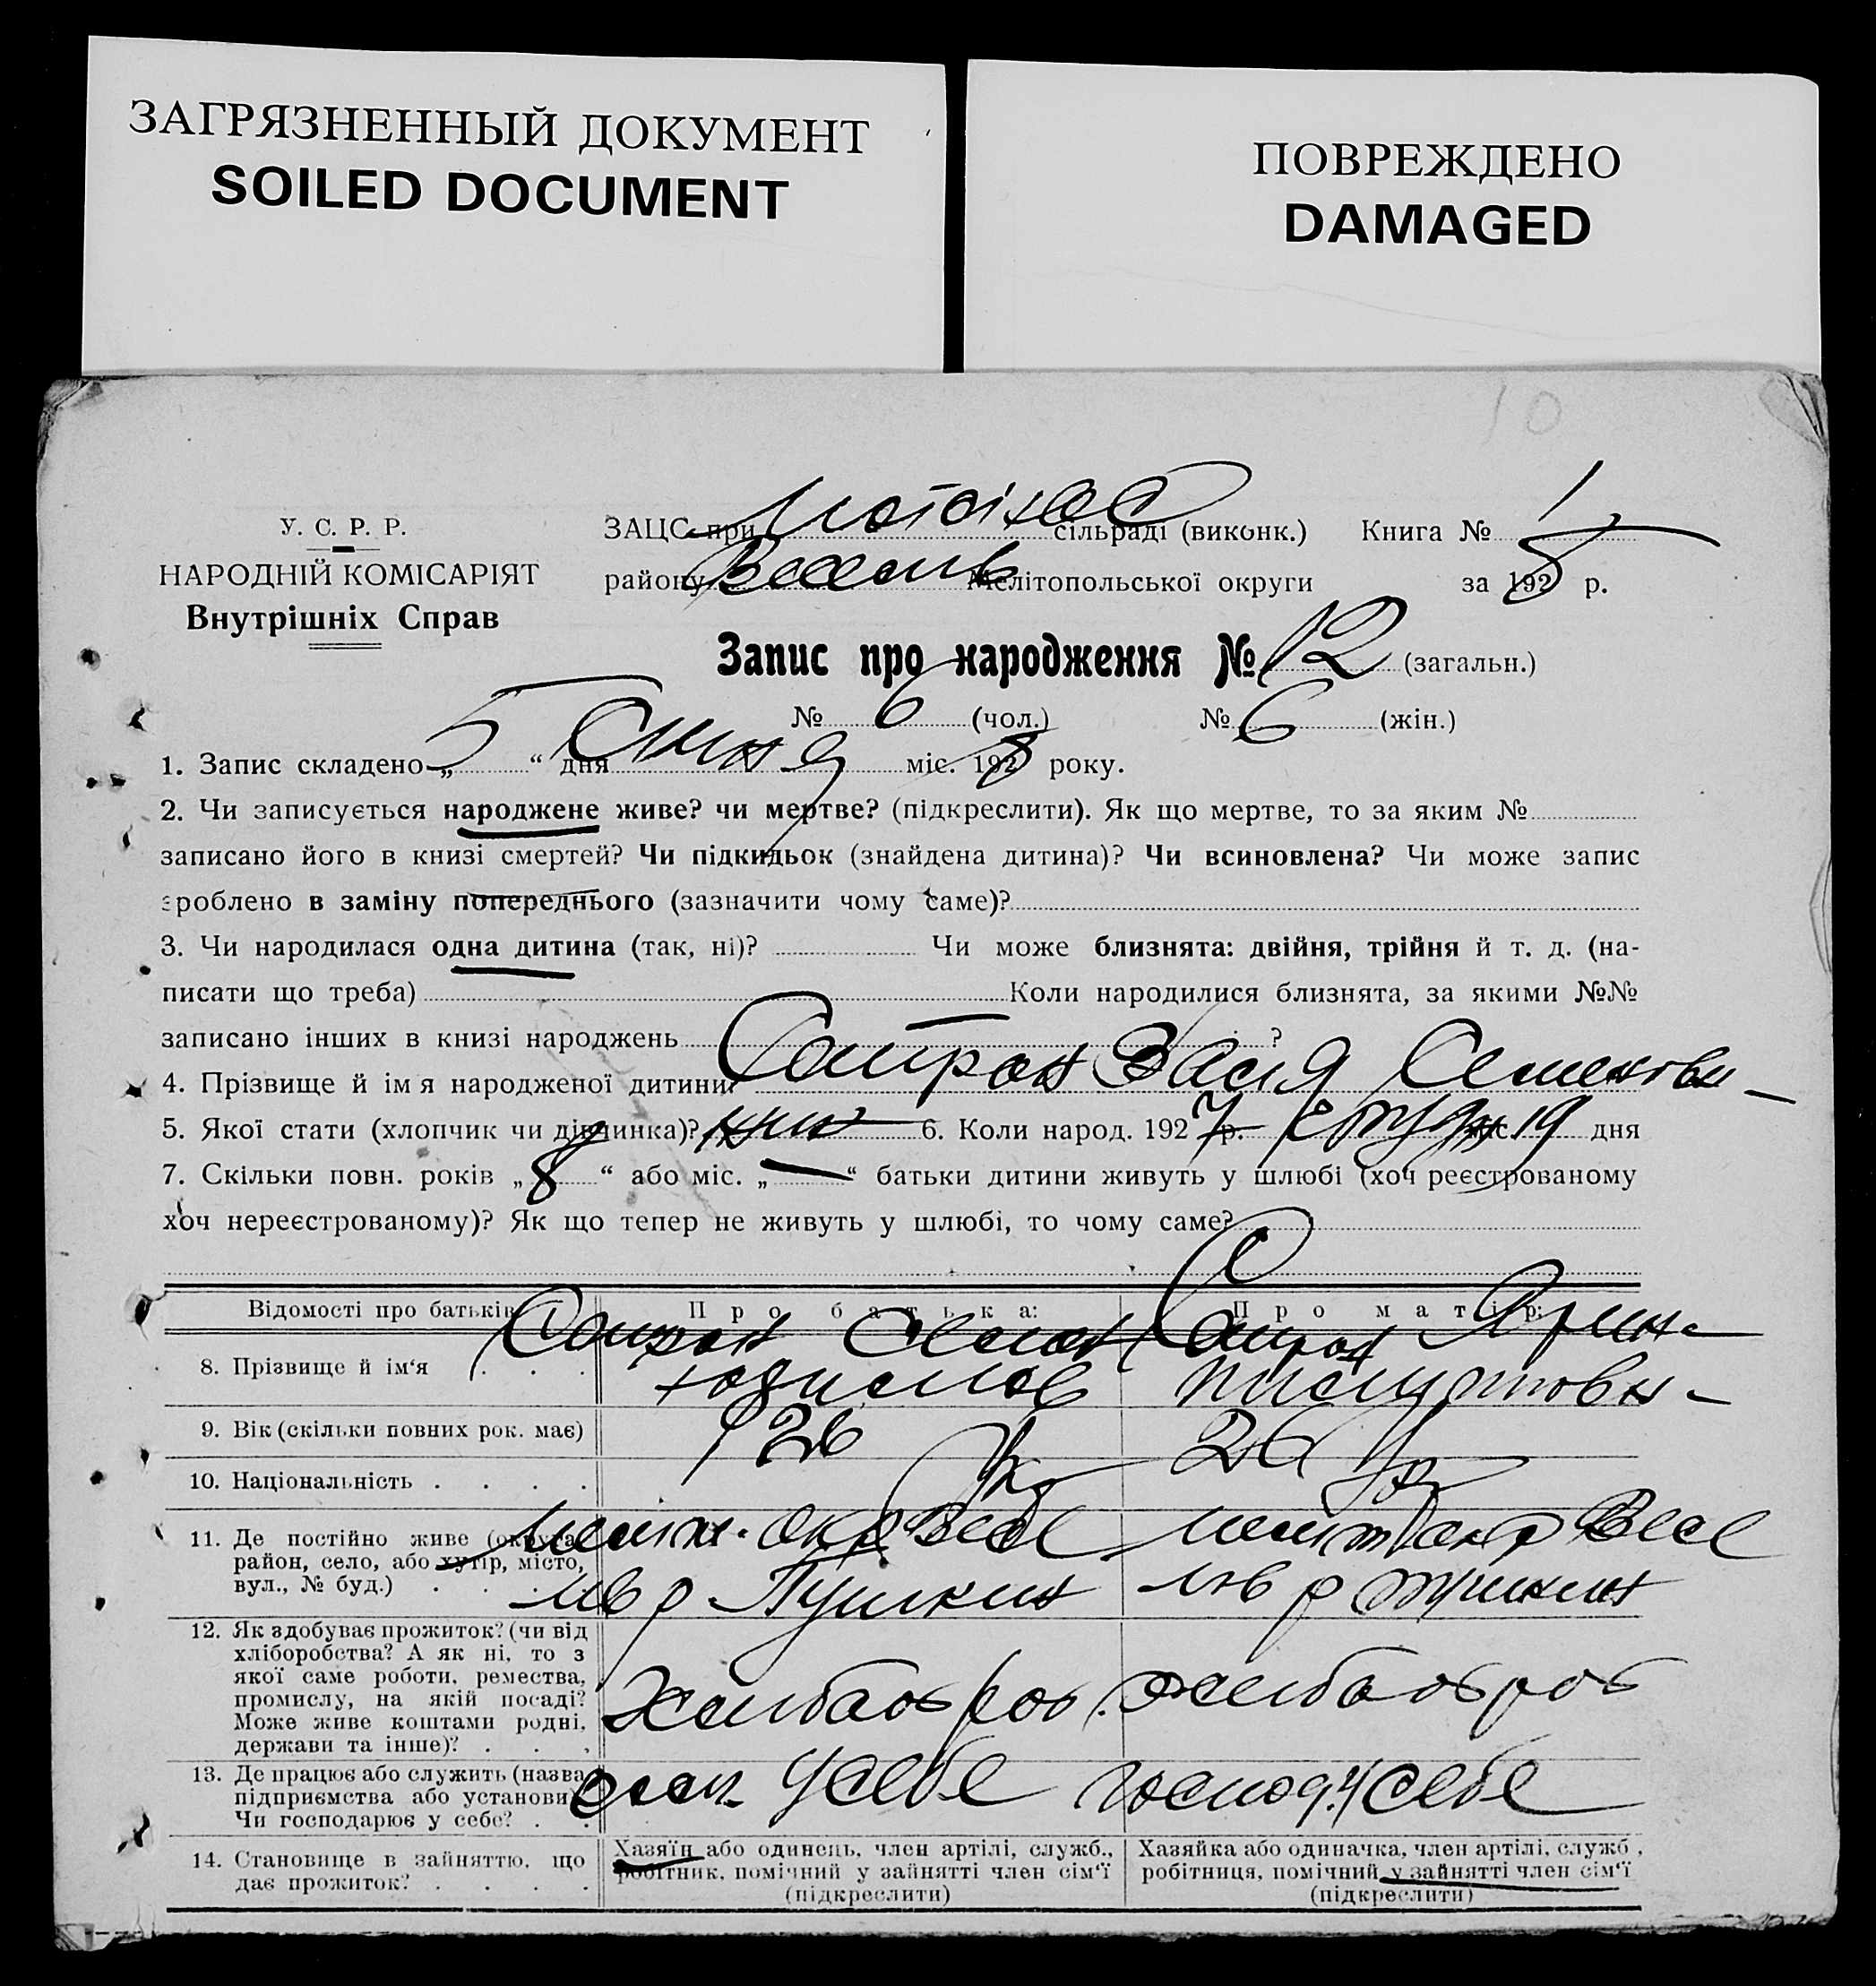 ЗАГРЯЗНЕННЫЙ ДОКУМЕНТ
SOILED DOCUMENT
ПОВРЕЖДЕНО
DAMAGED
10
У. С. Р. Р.
НАРОДНІЙ КОМІСАРІЯТ
Внутрішніх Справ
ЗАЦС при сільраді (виконк.) Книга № 1
району Весел Мелітопольської округи за 1928 р.
Запис про народження № 12 (загальн.)
№ 6 (чол.) № 6 (жін.)
1. Запис складено „ 5 “ дня Січня міс. 1928 року.
2. Чи записується народжене живе? чи мертве? (підкреслити). Як що мертве, то за яким №
записано його в книзі смертей? Чи підкидьок (знайдена дитина)? Чи всиновлена? Чи може запис
зроблено в заміну попереднього (зазначити чому саме)?
3. Чи народилася одна дитина (так, ні)? Чи може близнята: двійня, трійня й т. д. (на-
писати що треба) Коли народилися близнята, за якими №№
записано інших в книзі народжень ?
4. Прізвище й імя народженої дитини Семеновн
5. Якої стати (хлопчик чи дівчинка)? жин 6. Коли народ. 1927 р. грудн міс. 19 дня
7. Скільки повн. років „ 8 “ або міс. „ — “ батьки дитини живуть у шлюбі (хоч реєстрованому
хоч нереєстрованому)? Як що тепер не живуть у шлюбі, то чому саме?
Відомості про батьків Про батька: Про матір:
8. Прізвище й ім‘я . . . Семен Ярина
9. Вік (скільки повних рок. має) 26 26
10. Національність . . . . Укр Укр
11. Де постійно живе (округа, район, село, або хутір, місто, вул., № буд.) . . . Меліт. окр Весел р Пушкин Меліт окр Весел р Пушкин
12. Як здобуває прожиток? (чи від
хліборобства? А як ні, то з
якої саме роботи, ремества,
промислу, на якій посаді?
Може живе коштами родні,
держави та інше)? . . . Хлибаороб Хлибаороб
13. Де працює або служить (назва
підприємства або установи)?
Чи господарює у себе? . . у себе господ. у себе
14. Становище в зайняттю, що
дає прожиток? . . . .
Хазяїн або одинець, член артілі, служб.,
робітник, помічний у зайнятті член сім‘ї
(підкреслити)
Хазяйка або одиначка, член артілі, служб.,
робітниця, помічний у зайнятті член сім‘ї
(підкреслити)